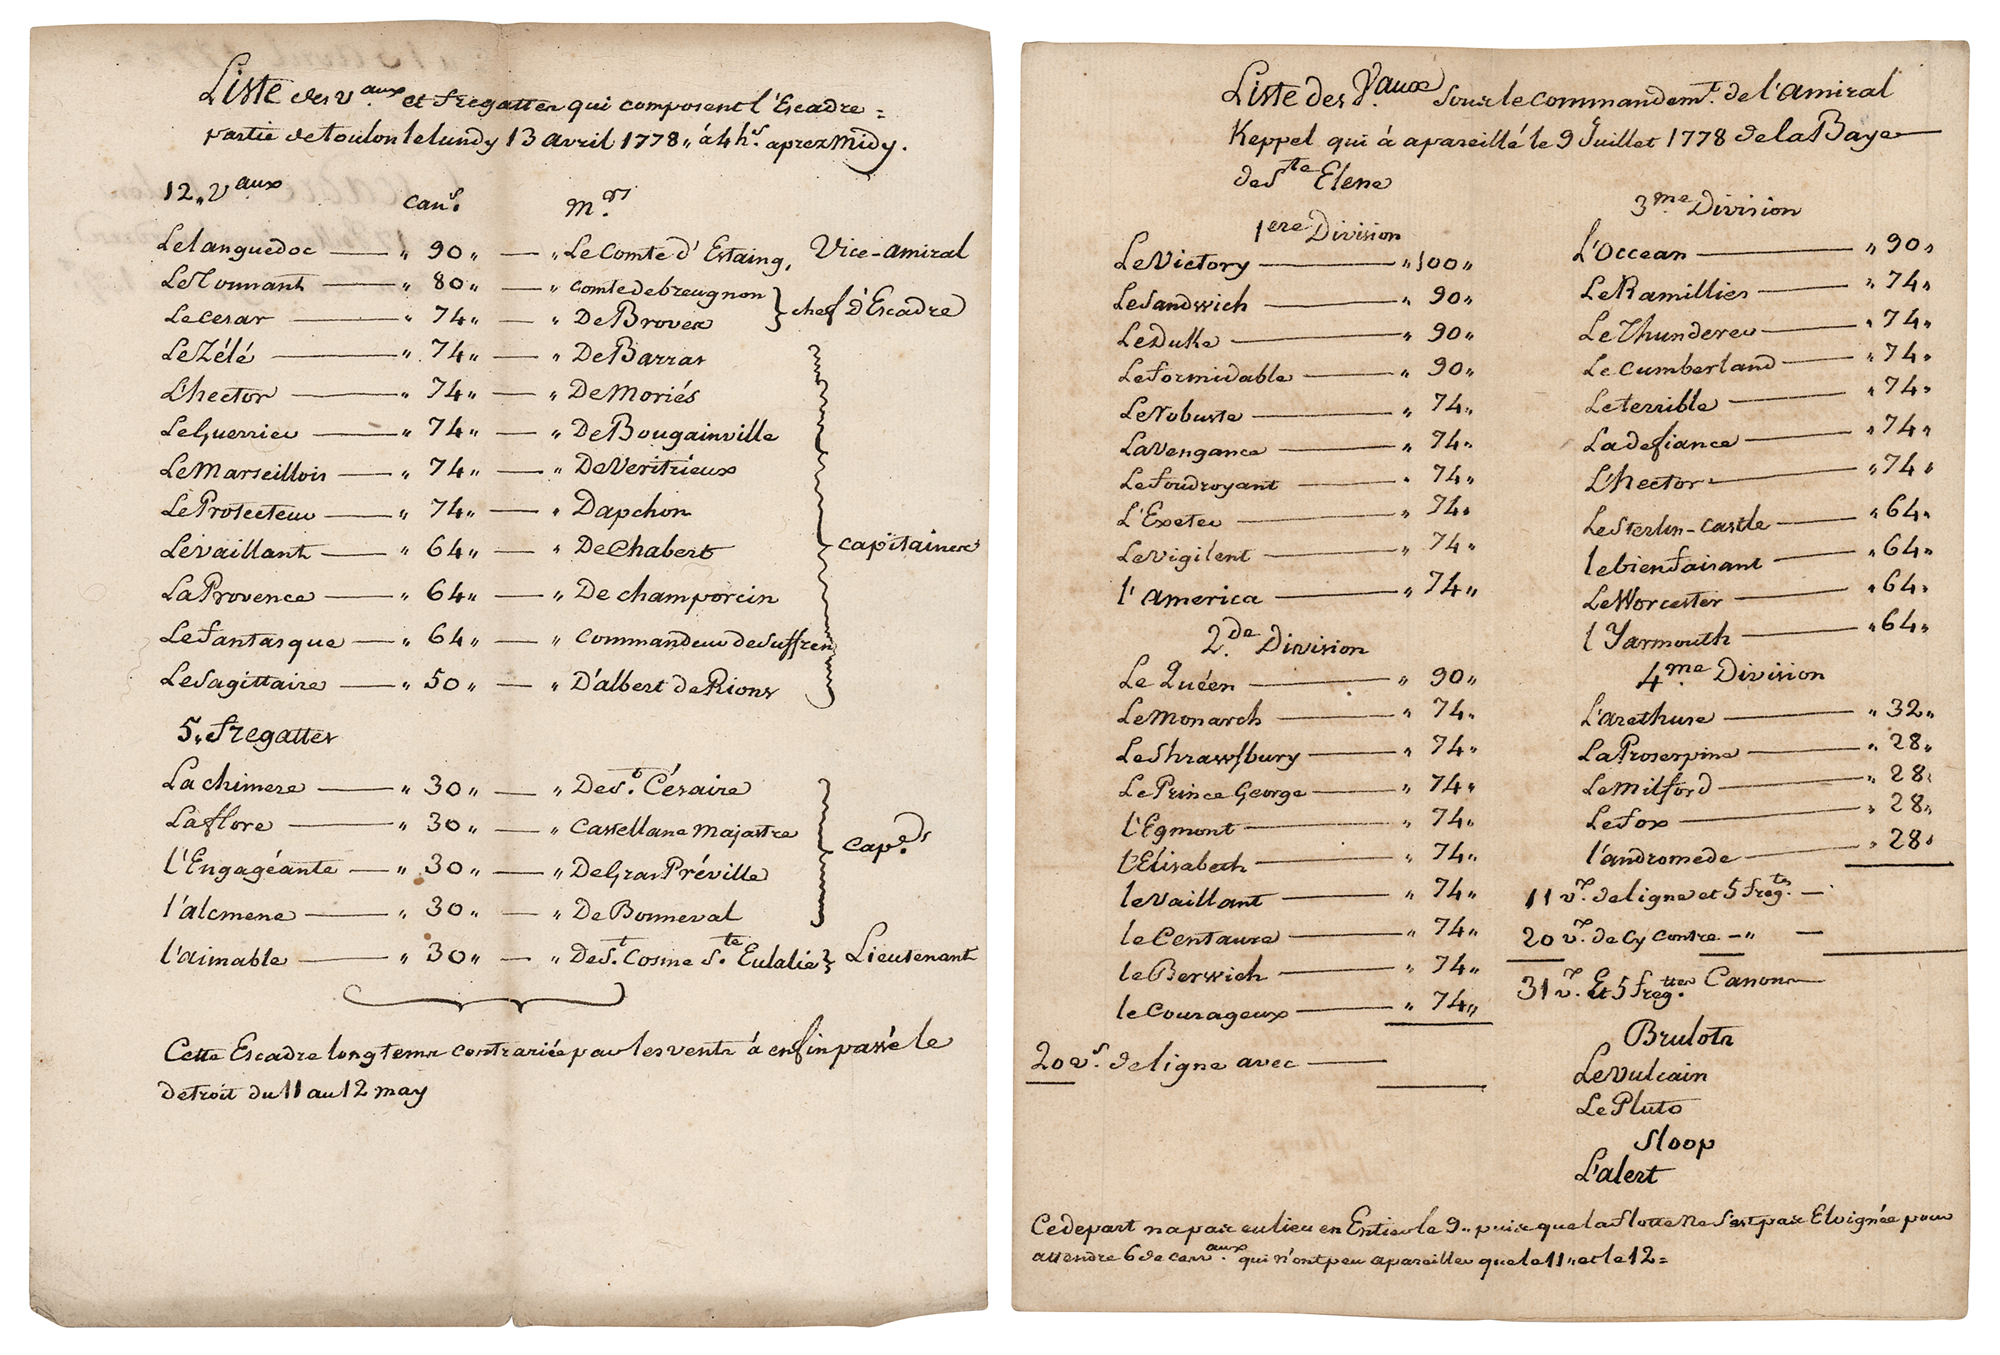 Liste des v.aux et fregattes qui composent l'Escadre =
partie de toulon le lundy 13 avril 1778 „ à 4 h.s aprez midy.
12 „ V.aux can.s M.rs
Le languedoc — „ 90 „ — „ Le Comte d'Estaing, Vice-amiral
Le Tonnant — „ 80 „ — „ comte de breugnon
Le Cesar — „ 74 „ — „ De Broves } chef d'Escadre
Le Zélé — „ 74 „ — „ De Barras
L'hector — „ 74 „ — „ De Moriés
Le Guerrier — „ 74 „ — „ De Bougainville
Le Marseillois — „ 74 „ — „ De Veritrieux
Le Protecteur — „ 74 „ — „ Dapchon
Le vaillant — „ 64 „ — „ De Chabert } capitaines
La Provence — „ 64 „ — „ De champorcin
Le fantasque — „ 64 „ — „ commandeur de Suffren
Le Sagittaire — „ 50 „ — „ D'albert de Rions
5 „ fregattes
La chimere — „ 30 „ — „ De S.t Césaire
La flore — „ 30 „ — „ Castellane majastre } cap.es
l'Engagéante — „ 30 „ — „ De Gras Préville
l'alcmene — „ 30 „ — „ De Bonneval
l'aimable — „ 30 „ — „ De S.t Cosme S.te Eulalie } Lieutenant
Cette Escadre longtems contrariée par les vents à enfin passé le
detroit du 11 au 12 may
Liste des V.aux sous le commandem.t de l'amiral
Keppel qui à apareillé le 9 Juillet 1778 de la Baye
de S.te Elene
1ere Division
Le Victory — „ 100 „
Le Sandwich — „ 90 „
Le Duke — „ 90 „
Le formidable — „ 90 „
Le Robuste — „ 74 „
La Vengance — „ 74 „
Le foudroyant — „ 74 „
L'Exeter — „ 74 „
Le Vigilent — „ 74 „
l'america — „ 74 „
2.de Division
Le Quéen — „ 90 „
Le Monarch — „ 74 „
Le Shrawsbury — „ 74 „
Le Prince George — „ 74 „
l'Egmont — „ 74 „
l'Elisabeth — „ 74 „
le vaillant — „ 74 „
le Centaure — „ 74 „
le Berwich — „ 74 „
le Courageux — „ 74 „
20 v.s de ligne avec —
3.me Division
l'Occean — „ 90 „
Le Ramillies — „ 74 „
Le Thunderer — „ 74 „
Le Cumberland — „ 74 „
Le terrible — „ 74 „
La defiance — „ 74 „
L'hector — „ 74 „
Le Sterlin-castle — „ 64 „
le bienfaisant — „ 64 „
Le Worcester — „ 64 „
l'Yarmouth — „ 64 „
4.me Division
L'arethuse — „ 32 „
La Proserpine — „ 28 „
Le Milford — „ 28 „
Le fox — „ 28 „
l'andromede — „ 28 „
11 v.x de ligne et 5 freg.tes —
20 v.x de cy contre — „ —
31 v.x Et 5 freg.ttes Canons —
Brulots
Le Vulcain
Le Pluto
Sloop
L'alert
Ce depart na pas eu lieu en Entier le 9 „ puis que la flotte Ne S'est pas Eloignée pour
attendre 6 de ces v.aux qui n'ont peu apareiller que le 11 „ et le 12 =